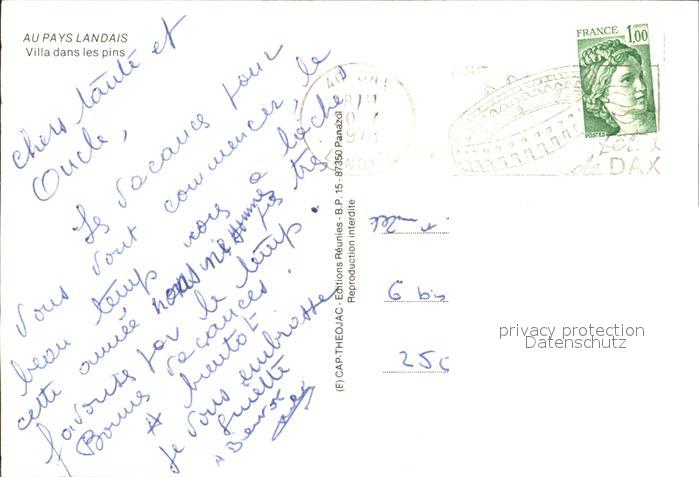 AU PAYS LANDAIS
Villa dans les pins
chers tante et
Oncle,
Les vacances pour
vous vont commencer, le
beau temps vous a lâché,
cette année nous ne sommes pas très
favorisés par le temps.
Bonnes vacances.
A bientôt
Je vous embrasse
A Bientôt
(E) CAP-THEOJAC - Editions Réunies - B.P. 15 - 87350 Panazol
Reproduction interdite
FRANCE 1,00
POSTES
de DAX
6 bis
privacy protection
Datenschutz